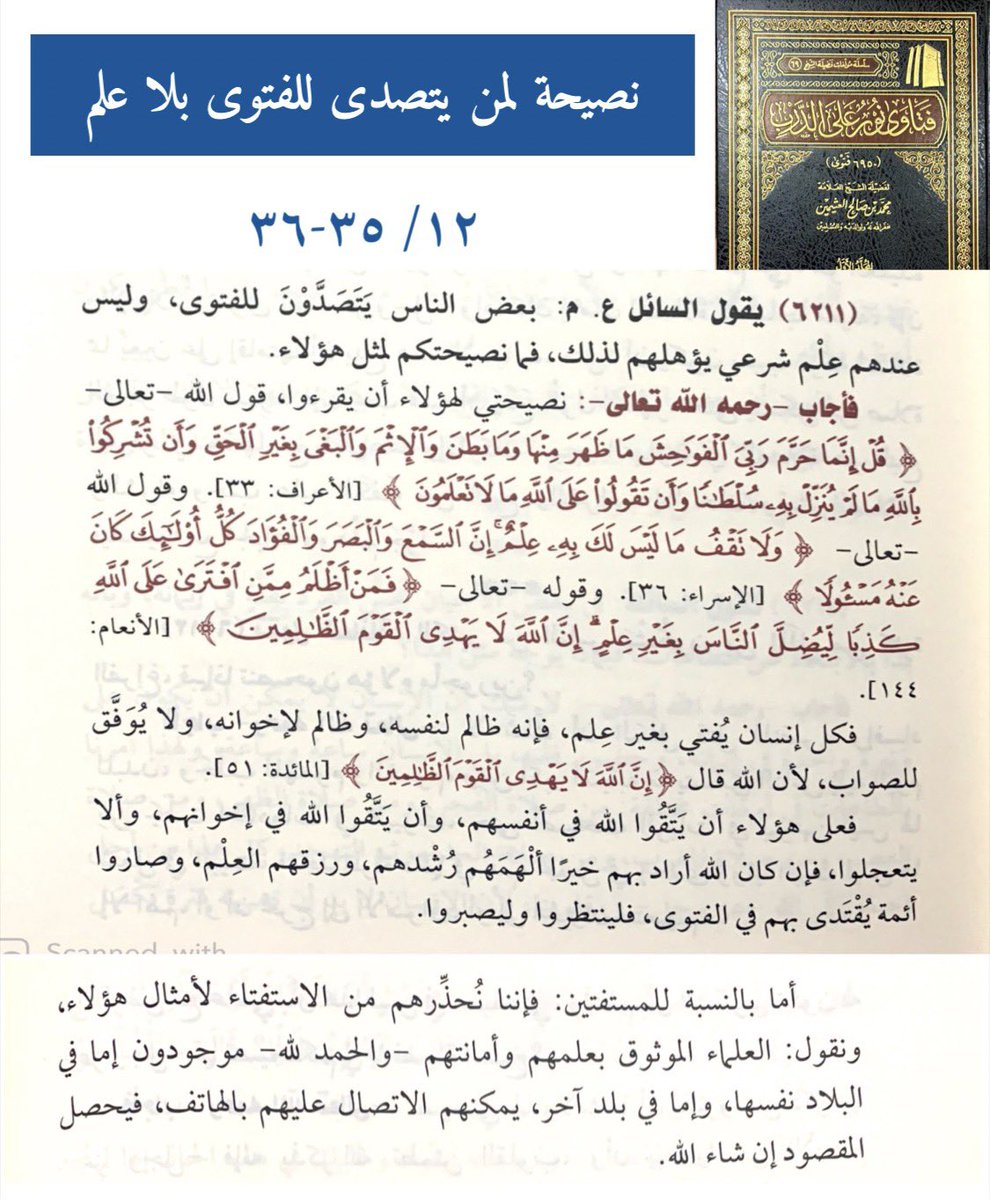 نصيحة لمن يتصدى للفتوى بلا علم
١٢/ ٣٥-٣٦
سلسلة مؤلفات فضيلة الشيخ (٦٩)
فتاوى نور على الدرب
(٦٩٥٠ فتوى)
لفضيلة الشيخ العلامة
محمد بن صالح العثيمين
غفر الله له ولوالديه وللمسلمين
المجلد الأول
(٦٢١١) يقول السائل ع. م: بعض الناس يَتَصَدَّوْنَ للفتوى، وليس
عندهم عِلْم شرعي يؤهلهم لذلك، فما نصيحتكم لمثل هؤلاء.
فأجاب -رحمه الله تعالى-: نصيحتي لهؤلاء أن يقرءوا، قول الله -تعالى-
﴿ قُلْ إِنَّمَا حَرَّمَ رَبِّيَ ٱلْفَوَٰحِشَ مَا ظَهَرَ مِنْهَا وَمَا بَطَنَ وَٱلْإِثْمَ وَٱلْبَغْىَ بِغَيْرِ ٱلْحَقِّ وَأَن تُشْرِكُوا۟
بِٱللَّهِ مَا لَمْ يُنَزِّلْ بِهِۦ سُلْطَـٰنًا وَأَن تَقُولُوا۟ عَلَى ٱللَّهِ مَا لَا تَعْلَمُونَ ﴾ [الأعراف: ٣٣]. وقول الله
-تعالى- ﴿ وَلَا تَقْفُ مَا لَيْسَ لَكَ بِهِۦ عِلْمٌ ۚ إِنَّ ٱلسَّمْعَ وَٱلْبَصَرَ وَٱلْفُؤَادَ كُلُّ أُو۟لَـٰٓئِكَ كَانَ
عَنْهُ مَسْـُٔولًا ﴾ [الإسراء: ٣٦]. وقوله -تعالى- ﴿ فَمَنْ أَظْلَمُ مِمَّنِ ٱفْتَرَىٰ عَلَى ٱللَّهِ
كَذِبًا لِّيُضِلَّ ٱلنَّاسَ بِغَيْرِ عِلْمٍ ۗ إِنَّ ٱللَّهَ لَا يَهْدِى ٱلْقَوْمَ ٱلظَّـٰلِمِينَ ﴾ [الأنعام:
١٤٤].
فكل إنسان يُفتي بغير عِلم، فإنه ظالم لنفسه، وظالم لإخوانه، ولا يُوَفَّق
للصواب، لأن الله قال ﴿ إِنَّ ٱللَّهَ لَا يَهْدِى ٱلْقَوْمَ ٱلظَّـٰلِمِينَ ﴾ [المائدة: ٥١].
فعلى هؤلاء أن يَتَّقُوا الله في أنفسهم، وأن يَتَّقُوا الله في إخوانهم، وألا
يتعجلوا، فإن كان الله أراد بهم خيرًا ألْهَمَهُم رُشْدهم، ورزقهم العِلْم، وصاروا
أئمة يُقْتَدى بهم في الفتوى، فلينتظروا وليصبروا.
Scanned with
أما بالنسبة للمستفتين: فإننا نُحذِّرهم من الاستفتاء لأمثال هؤلاء،
ونقول: العلماء الموثوق بعلمهم وأمانتهم -والحمد لله- موجودون إما في
البلاد نفسها، وإما في بلد آخر، يمكنهم الاتصال عليهم بالهاتف، فيحصل
المقصود إن شاء الله.